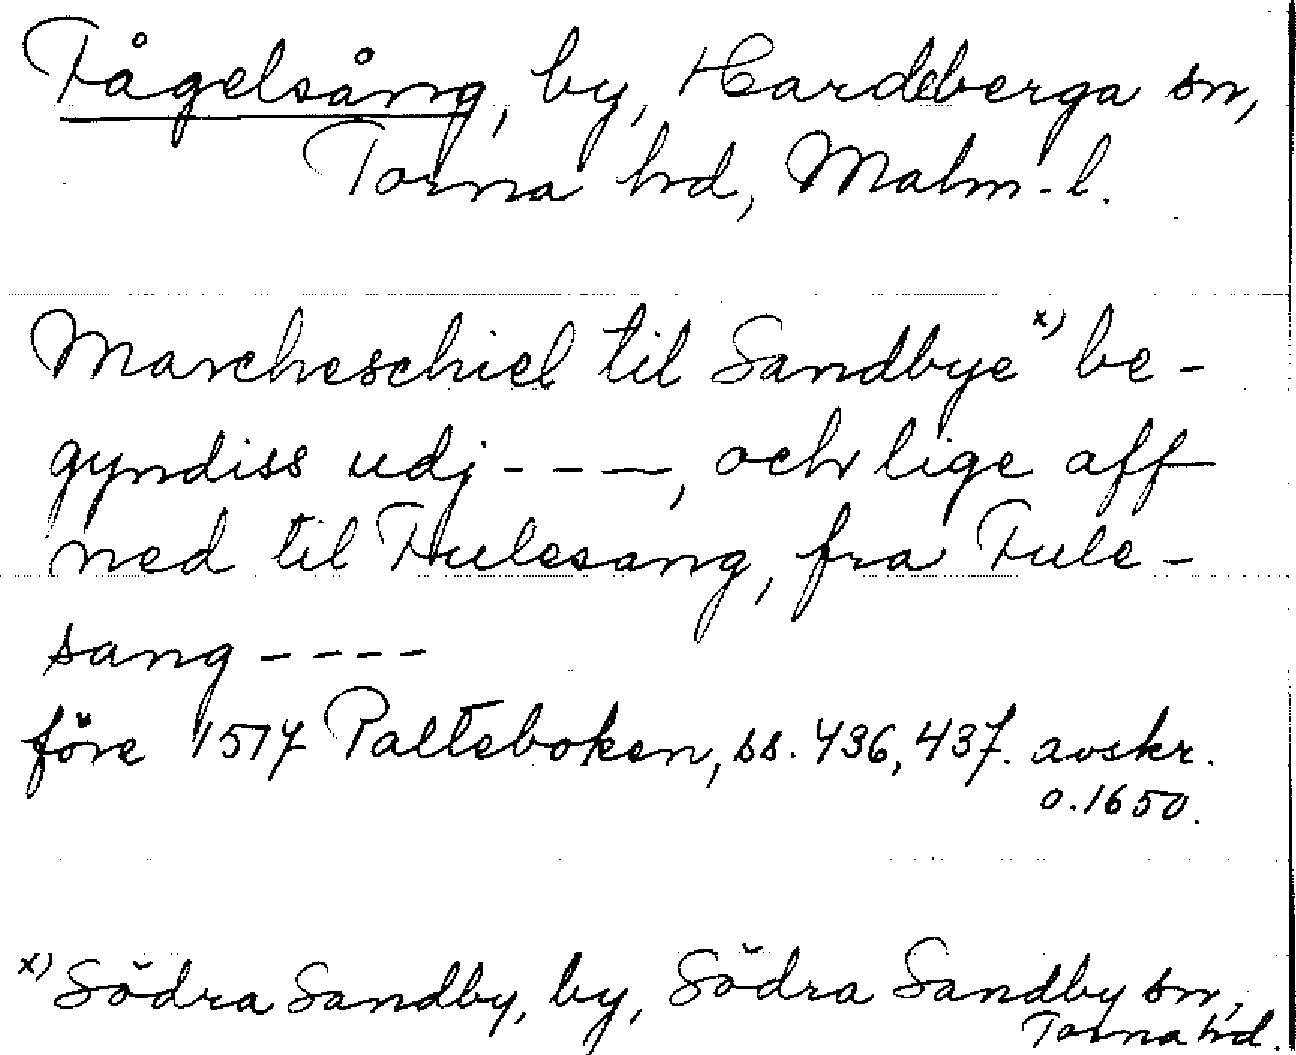 Fågelsång, by, Hardeberga sn,
Torna hd, Malm-l.
Marcheschiel til Sandbye x) be-
gyndiss udj ----, och lige aff
ned til Fulesang, fra Fule-
sang ----
före 1517 Palteboken, ss. 436, 437. avskr.
o. 1650.
x) Södra Sandby, by, Södra Sandby sn,
Torna hd.